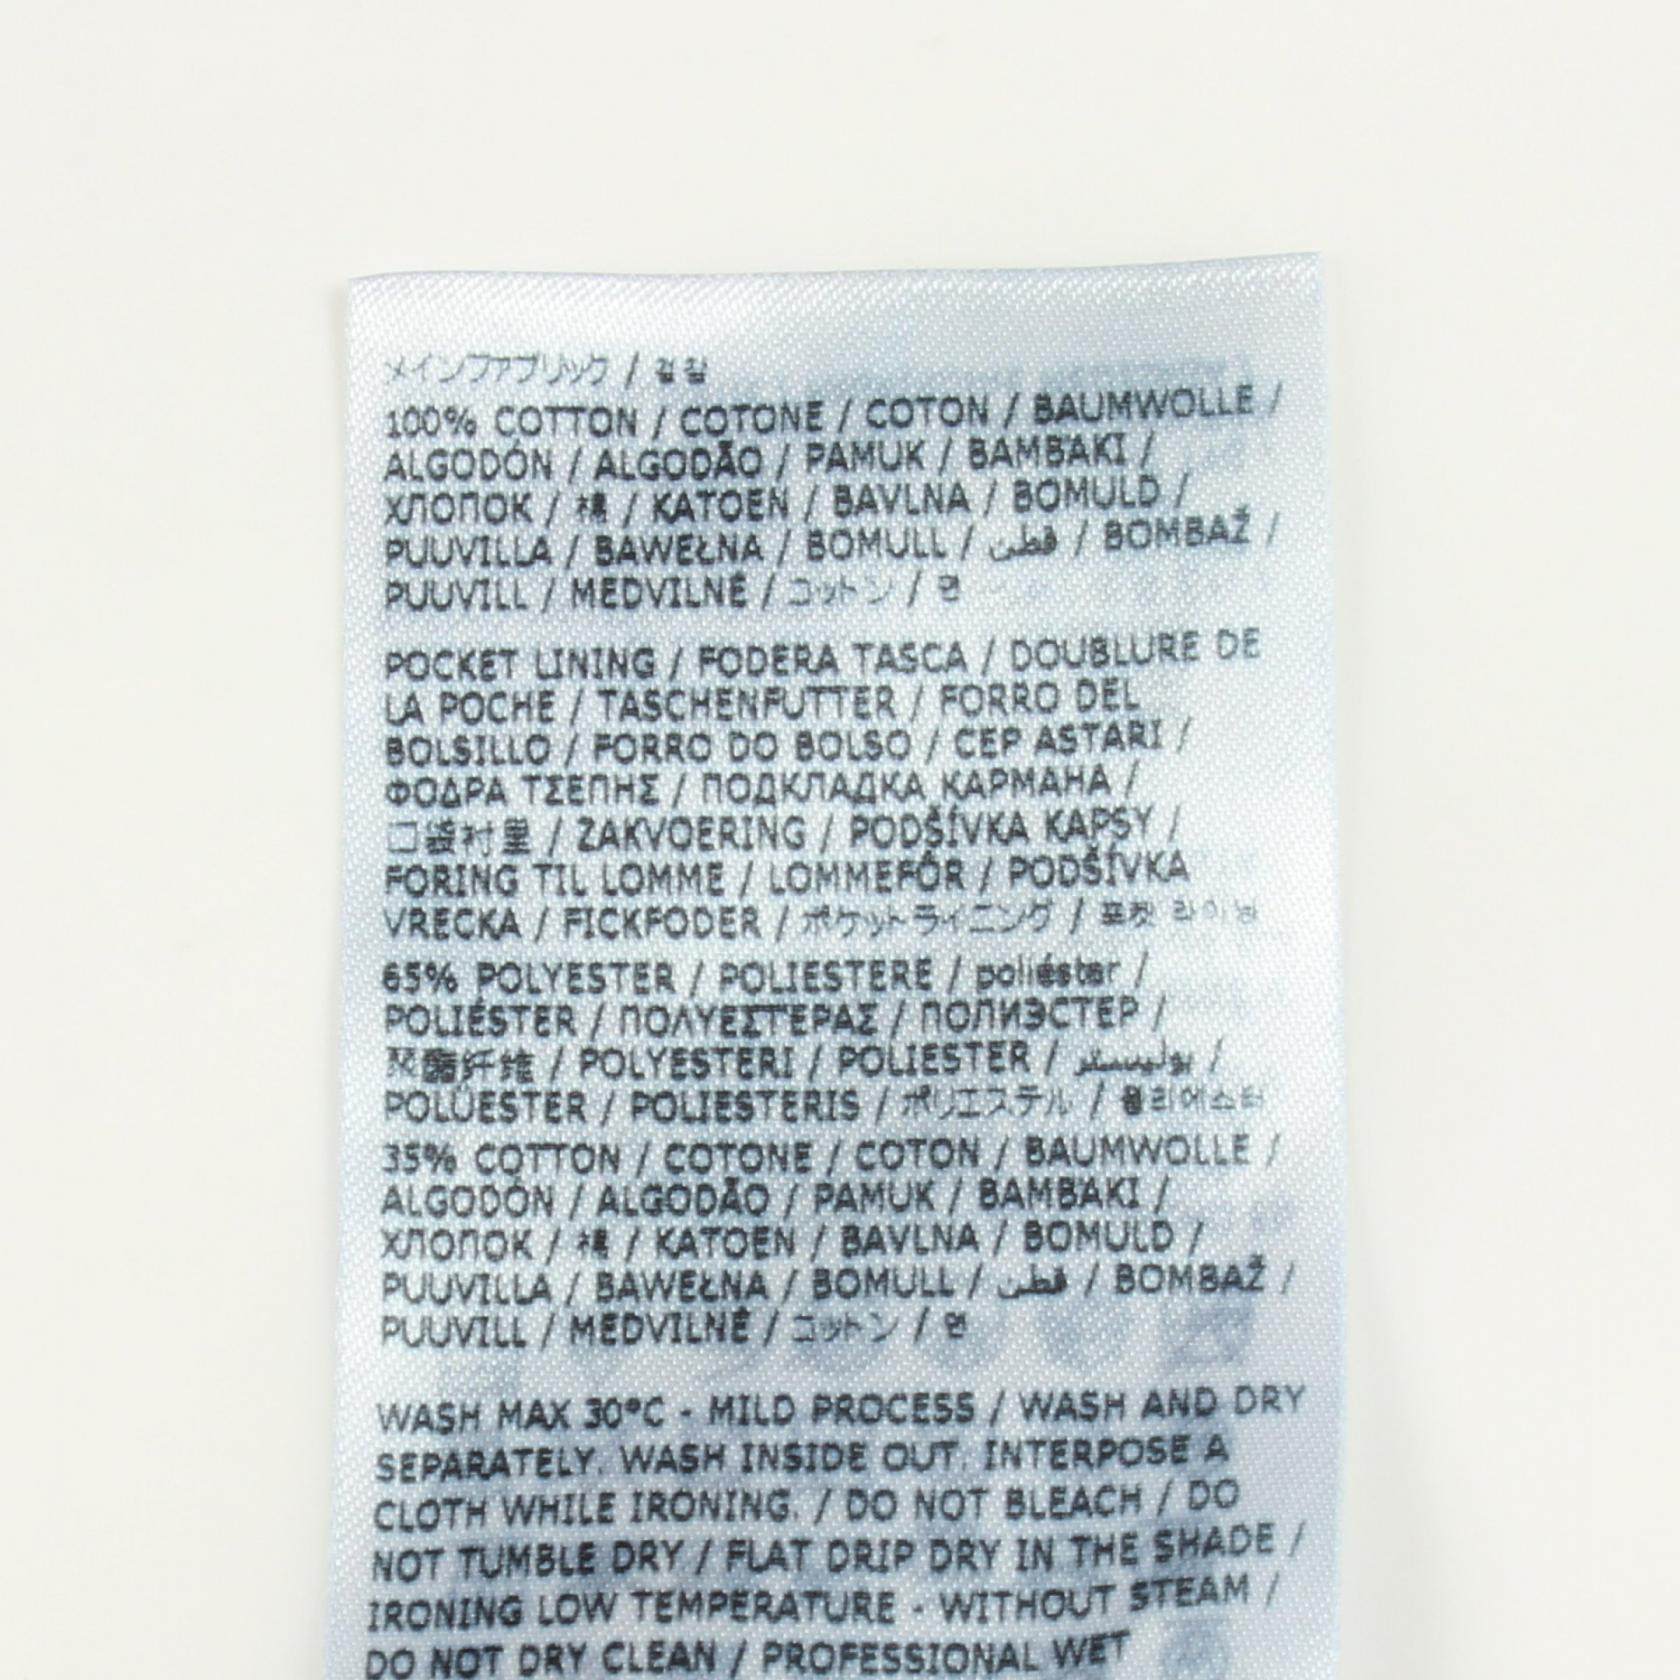 メインファブリック / 겉감
100% COTTON / COTONE / COTON / BAUMWOLLE /
ALGODÓN / ALGODÃO / PAMUK / BAMBAKI /
ХЛОПОК / 棉 / KATOEN / BAVLNA / BOMULD /
PUUVILLA / BAWEŁNA / BOMULL / قطن / BOMBAŽ /
PUUVILL / MEDVILNĖ / コットン / 면
POCKET LINING / FODERA TASCA / DOUBLURE DE
LA POCHE / TASCHENFUTTER / FORRO DEL
BOLSILLO / FORRO DO BOLSO / CEP ASTARI /
ΦΟΔΡΑ ΤΣΕΠΗΣ / ПОДКЛАДКА КАРМАНА /
口袋衬里 / ZAKVOERING / PODŠÍVKA KAPSY /
FORING TIL LOMME / LOMMEFÔR / PODŠÍVKA
VRECKA / FICKFODER / ポケットライニング / 포켓 라이닝
65% POLYESTER / POLIESTERE / poliéster /
POLIÉSTER / ΠΟΛΥΕΣΤΕΡΑΣ / ПОЛИЭСТЕР /
聚酯纤维 / POLYESTERI / POLIESTER / بوليستر /
POLÜESTER / POLIESTERIS / ポリエステル / 폴리에스터
35% COTTON / COTONE / COTON / BAUMWOLLE /
ALGODÓN / ALGODÃO / PAMUK / BAMBAKI /
ХЛОПОК / 棉 / KATOEN / BAVLNA / BOMULD /
PUUVILLA / BAWEŁNA / BOMULL / قطن / BOMBAŽ /
PUUVILL / MEDVILNĖ / コットン / 면
WASH MAX 30°C - MILD PROCESS / WASH AND DRY
SEPARATELY. WASH INSIDE OUT. INTERPOSE A
CLOTH WHILE IRONING. / DO NOT BLEACH / DO
NOT TUMBLE DRY / FLAT DRIP DRY IN THE SHADE /
IRONING LOW TEMPERATURE - WITHOUT STEAM /
DO NOT DRY CLEAN / PROFESSIONAL WET